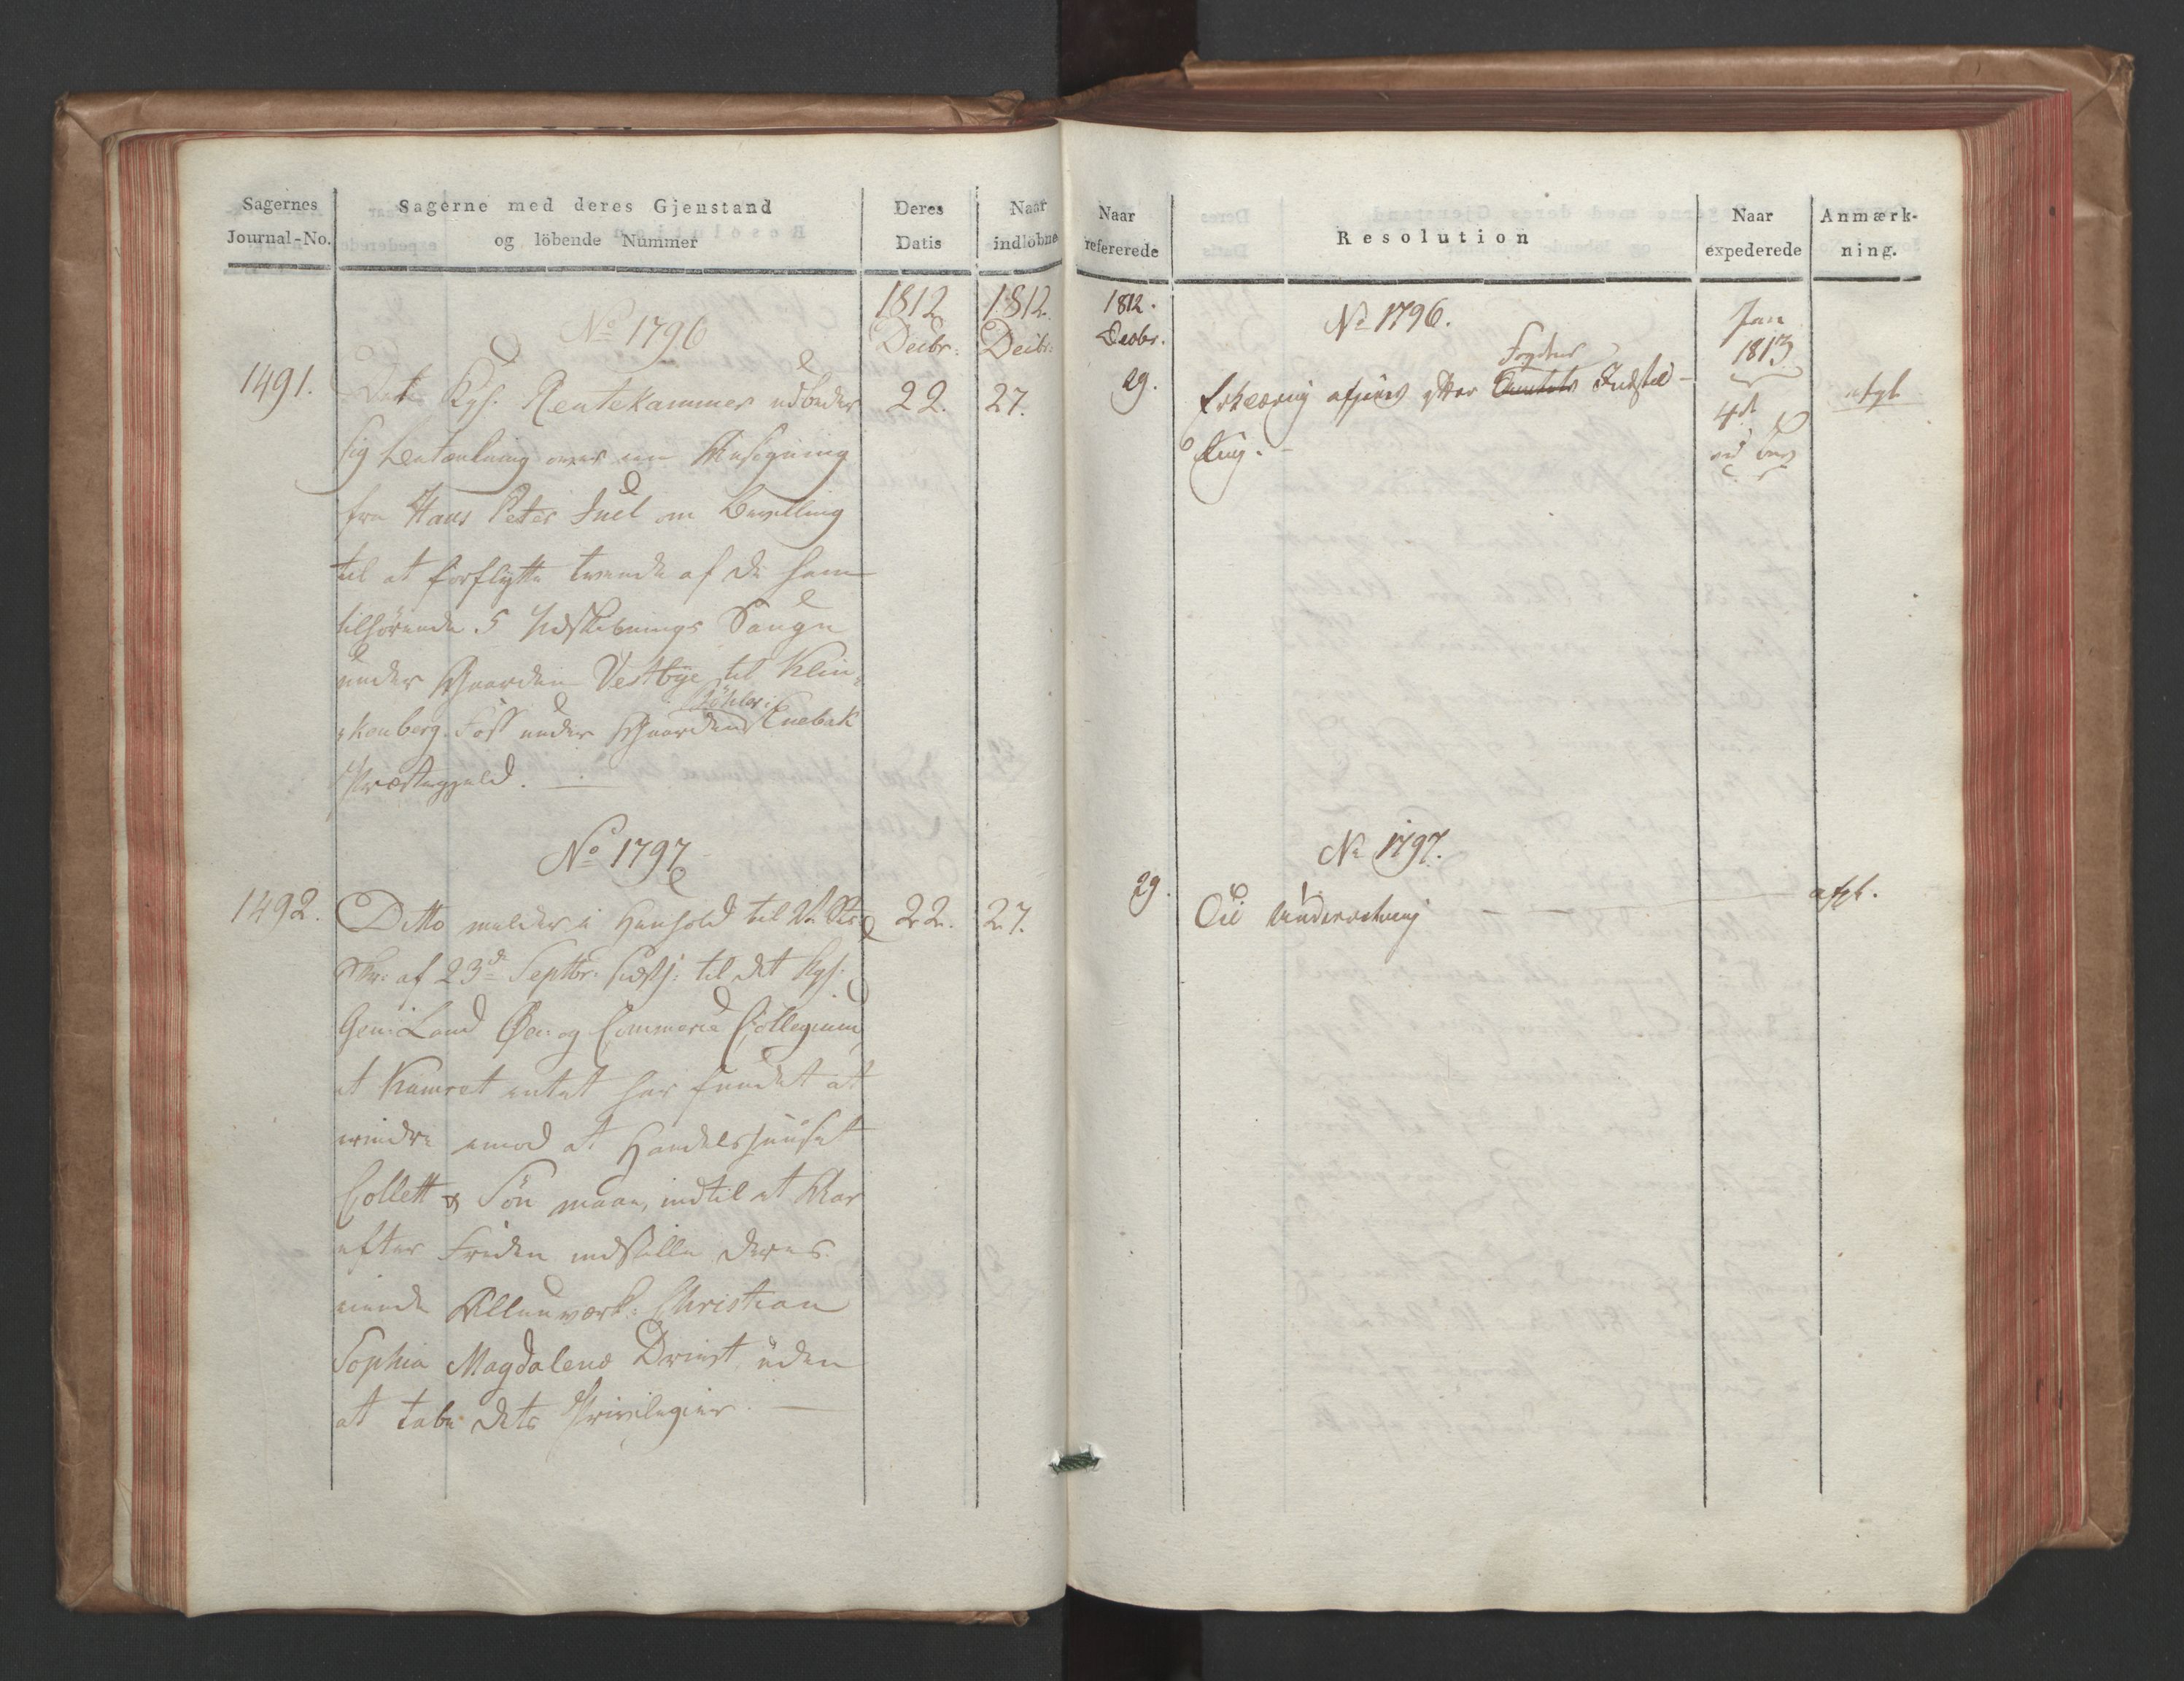 Sagernes
Journal-No.
Sagerne med deres Gjenstand
og löbende Nummer
Deres
Datis
Naar
indlöbne
1812
Decbr:
1812.
Decbr:
No 1796
1491.
Det Kgs. Rentekammer udbeder
22.
27.
sig betænkning over en Ansøgning
fra Hans Peter Juel om Bevilling
til at forflytte tvende af de ham
tilhörende 5 Sauge
under Gaarden Vestbye til Klin-
kenberg Foss under Gaarden Enebak
Præstegjeld.
No 1797
1492.
Ditto melder i Henhold til
22.
27.
Skr: af 23de Septbr: sidstl: til det Kgl.
Gen: Land Øec: og Commerce Collegium,
at Kamret intet har fundet at
erindre imod at Handelshuuset
Collett & Sön maae, indtil et Aar
efter Freden indstille deres
eiende Allunværk: Christian
Sophia Magdalene Drivst, uden
at tabe dets Privilegier.
Naar
refererede
Resolution
Naar
expederede
Anmærk-
ning.
1812.
Decbr.
No 1796.
Jan
1813
29.
Erklæring afgives efter Fogdens Indstil-
ling.
4de
afgl
No 1797.
29.
Til Underretning
afgl.